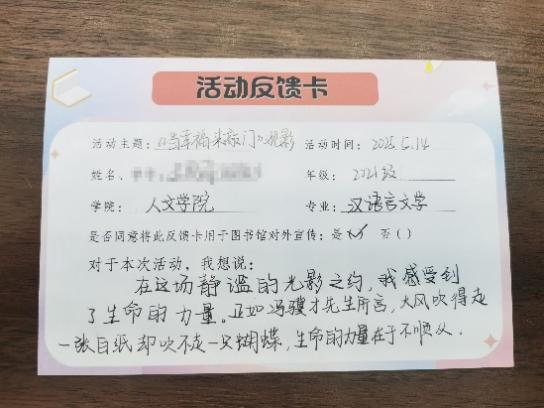 活动反馈卡
活动主题：《当幸福来敲门》观影 活动时间：2025.5.14
姓名： 年级：2021级
学院：人文学院 专业：汉语言文学
是否同意将此反馈卡用于图书馆对外宣传：是(✓) 否( )
对于本次活动，我想说：
在这场静谧的光影之约，我感受到
了生命的力量。正如冯骥才先生所言，大风吹得走
一张白纸却吹不走一只蝴蝶，生命的力量在于不顺从.